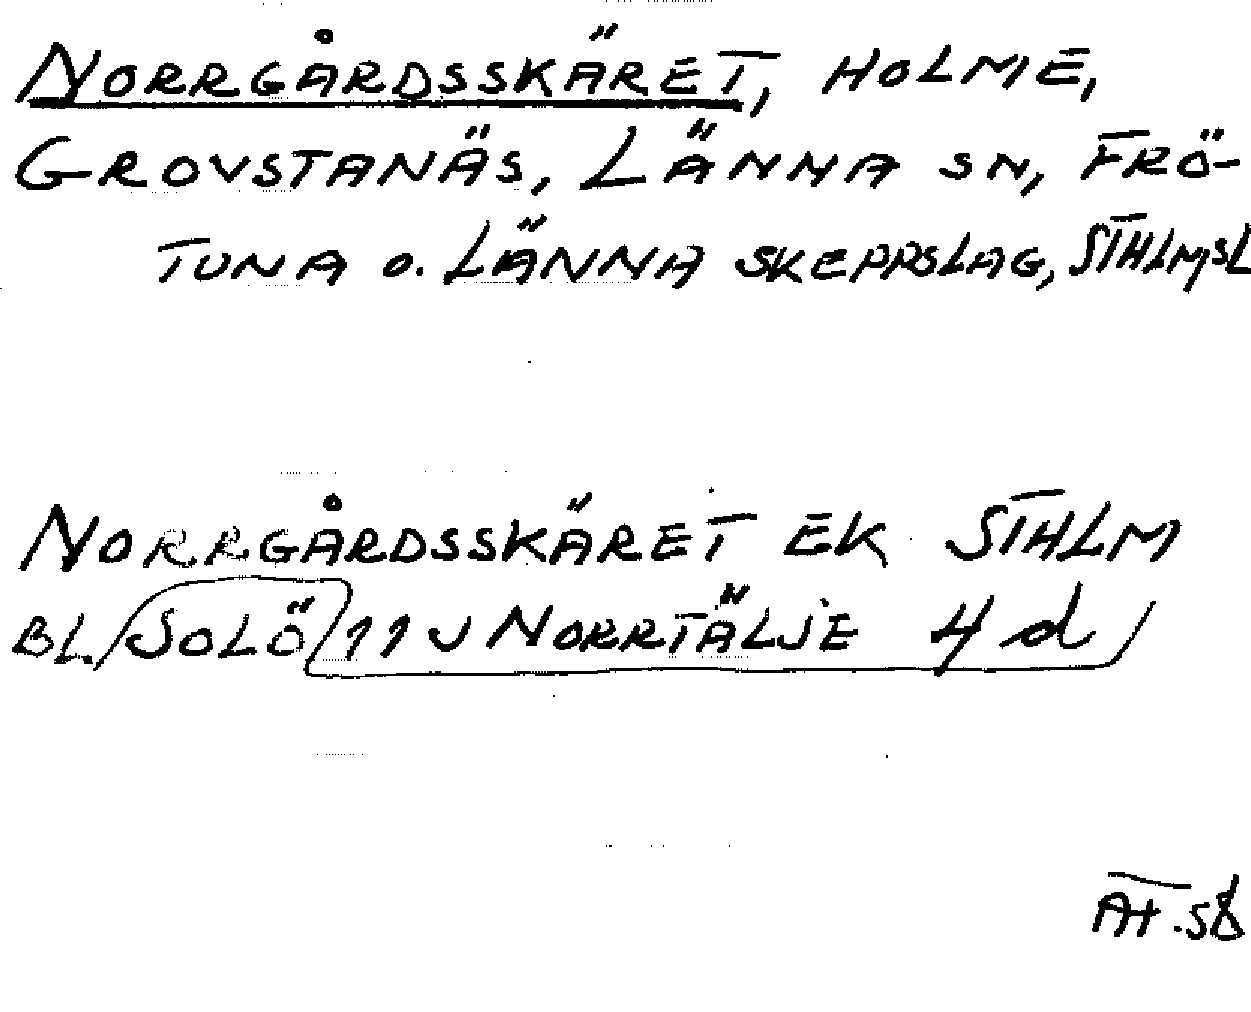 NORRGÅRDSSKÄRET, HOLME,
GROVSTANÄS, LÄNNA SN, FRÖ-
TUNA O. LÄNNA SKEPPSLAG, STHLMSL
NORRGÅRDSSKÄRET EK STHLM
BL. SOLÖ 11 V NORRTÄLJE 4 d
AH.58